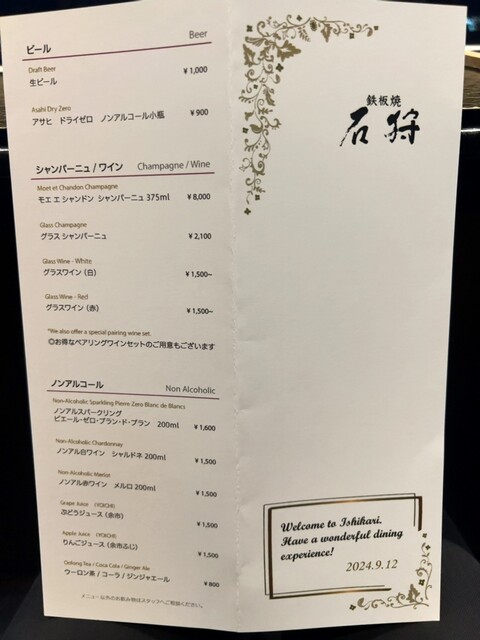 ビール
Beer
Draft Beer
生ビール ¥1,000
Asahi Dry Zero
アサヒ ドライゼロ ノンアルコール小瓶 ¥900
シャンパーニュ / ワイン Champagne / Wine
Moet et Chandon Champagne
モエ エ シャンドン シャンパーニュ 375ml ¥8,000
Glass Champagne
グラス シャンパーニュ ¥2,100
Glass Wine - White
グラスワイン (白) ¥1,500~
Glass Wine - Red
グラスワイン (赤) ¥1,500~
*We also offer a special pairing wine set.
◎お得なペアリングワインセットのご用意もございます
ノンアルコール Non Alcoholic
Non-Alcoholic Sparkling Pierre Zero Blanc de Blancs
ノンアルスパークリング
ピエール・ゼロ・ブラン・ド・ブラン 200ml ¥1,600
Non-Alcoholic Chardonnay
ノンアル白ワイン シャルドネ 200ml ¥1,500
Non-Alcoholic Merlot
ノンアル赤ワイン メルロ 200ml ¥1,500
Grape Juice (YOICHI)
ぶどうジュース (余市) ¥1,500
Apple Juice (YOICHI)
りんごジュース (余市ふじ) ¥1,500
Oolong Tea / Coca Cola / Ginger Ale
ウーロン茶 / コーラ / ジンジャエール ¥800
メニュー以外のお飲み物はスタッフへご相談ください。
鉄板焼
石狩
Welcome to Ishikari.
Have a wonderful dining
experience!
2024.9.12